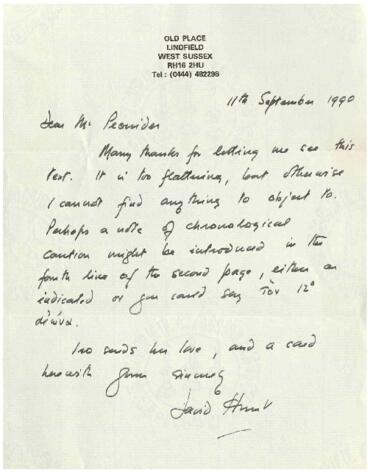 OLD PLACE
LINDFIELD
WEST SUSSEX
RH16 2HU
Tel : (0444) 482298
11th September 1990
Dear Mr
Many thanks for letting me see this
text. It is too flattering, but otherwise
I cannot find anything to object to.
Perhaps a note of chronological
caution might be introduced in the
fourth line of the second page, either as
indicated or you could say τὸν 12º
αἰῶνα.
Iro sends her love, and a card
herewith Yours sincerely
David Hunt